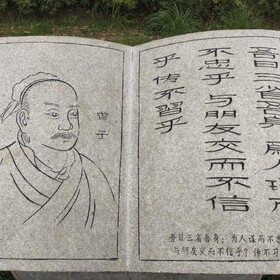 吾日三省吾身爲人
不忠乎与朋友交而不信
乎传不習乎
曾子
吾日三省吾身：为人谋而不
与朋友交而不信乎？传不